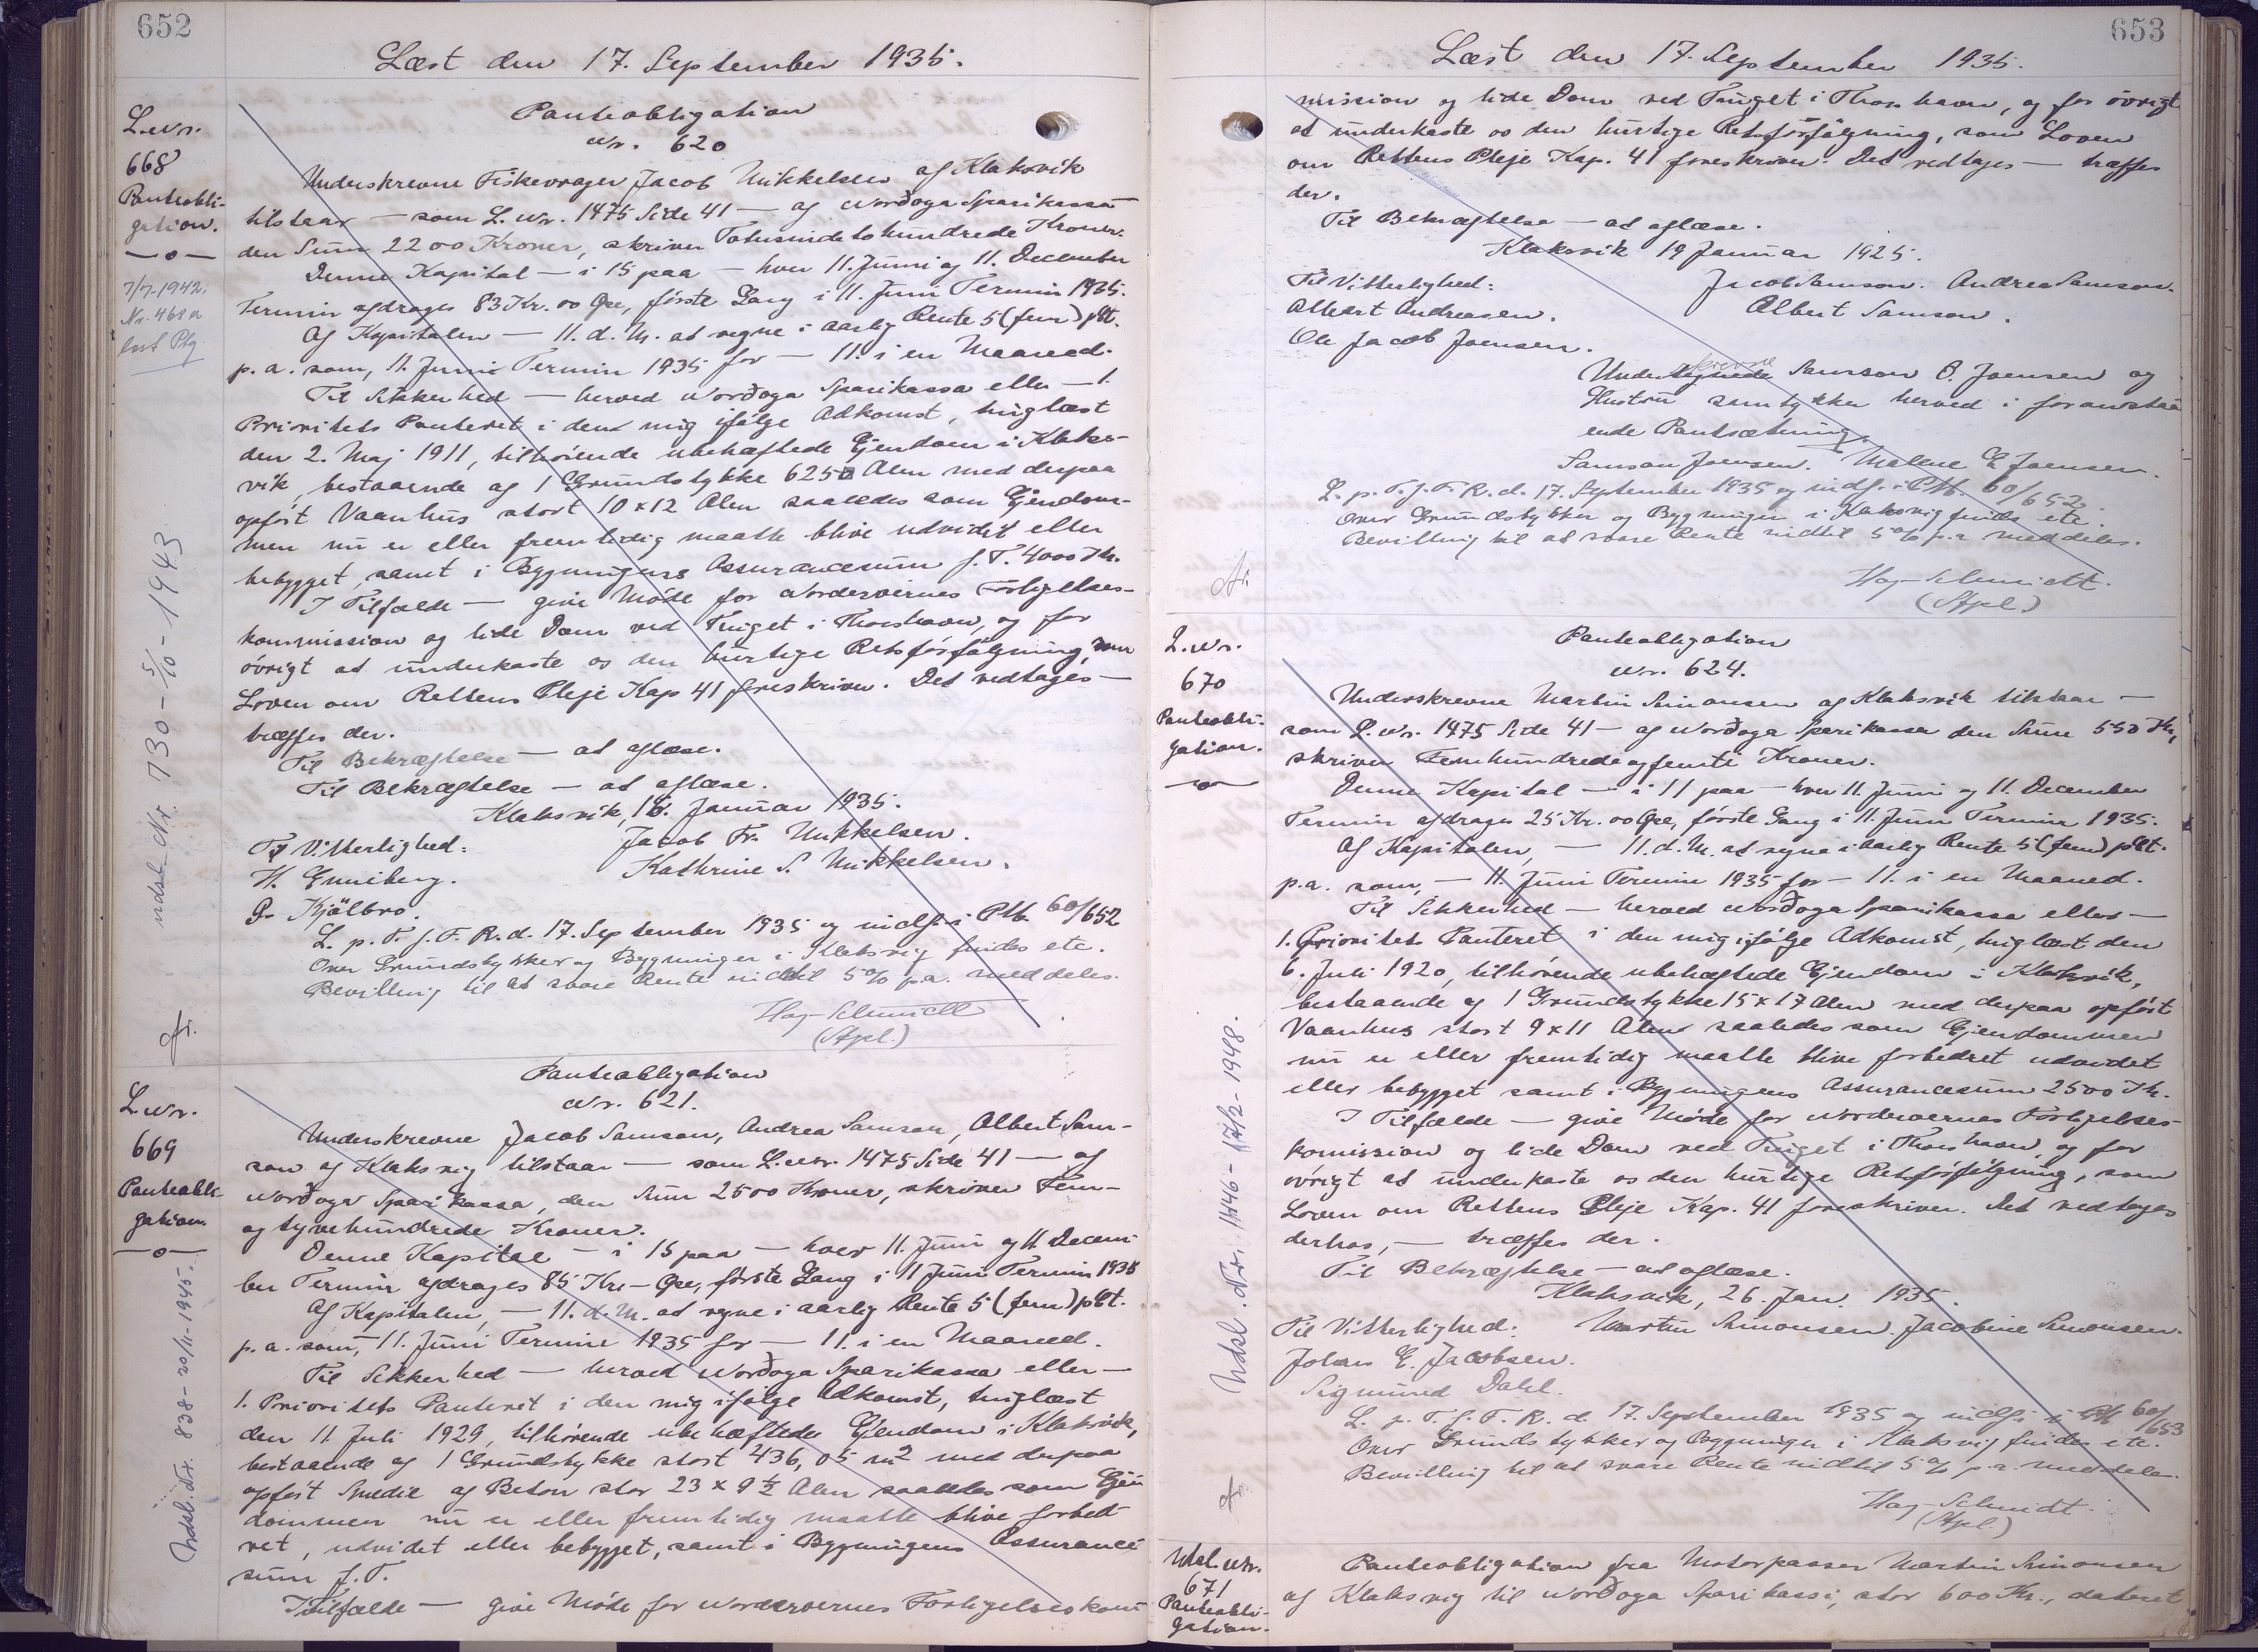 652
Læst den 17. September 1935.
L.nr.
668
Panteobli-
gation.
—o—
7/7-1942.
Nr. 468 a
lyst Ptg
Panteobligation
Nr. 620
Underskrevne Fiskevrager Jacob Mikkelsen af Klaksvik
tilstaar — som L. Nr. 1475 Side 41 — af Norðoya Sparikassa
den Sum 2200 Kroner, skriver Totusindetohundrede Kroner.
Denne Kapital — i 15 paa — hver 11. Juni og 11. December
Termin afdrages 83 Kr. 00 Øre, første Gang i 11. Juni Termin 1935.
Af Kapitalen — 11. d. M. at regne i aarlig Rente 5 (fem) pCt.
p. a. som, 11. Juni Termin 1935 for — 11. i en Maaned.
Til Sikkerhed — herved Norðoya Sparikassa eller — 1.
Prioritets Panteret i den mig ifølge Adkomst, tinglæst
den 2. Maj 1911, tilhörende ubehæftede Ejendom i Klaks-
vik, bestaaende af 1 Grundstykke 625 □ Alen med derpaa
opført Vaanhus stort 10 x 12 Alen saaledes som Ejendom-
men nu er eller fremtidig maatte blive udvidet eller
bebygget, samt i Bygningens Assurancesum f. T. 4000 Kr.
I Tilfælde — give Möde for Norderøernes Forligelses-
kommission og lide Dom ved Tinget i Thorshavn, og for
övrigt at underkaste os den hurtige Retsforfølgning, som
Loven om Rettens Pleje Kap 41 foreskriver. Det vedtages —
træffes der.
Til Bekræftelse — at aflæse.
Til Bekræftelse — at aflæse.
Klaksvik, 16. Januar 1935.
Til Vitterlighed: Jacob Fr. Mikkelsen.
H. Enniberg. Kathrine S. Mikkelsen.
P. Kjölbro.
L. p. T. f. F. R. d. 17. September 1935 og indf. i Ptb. 60/652
Over Grundstykker og Bygninger i Klaksvig findes etc.
Bevilling til at svare Rente indtil 5% p.a. meddeles.
Hag-Schmidt
(Stpl.)
Udsl. Nr. 730 - 5/10 - 1943
L.nr.
669
Panteobli-
gation.
—o—
Udsl. Nr. 838 - 20/11 - 1945.
Panteobligation
Nr. 621.
Underskrevne Jacob Samson, Andrea Samson, Albert Sam-
son af Klaksvig tilstaar — som L. Nr. 1475 Side 41 — af
Norðoya Sparikassa, den Sum 2500 Kroner, skriver Fem-
og tyvehundrede Kroner.
Denne Kapital — i 15 paa — hver 11. Juni og 11. Decem-
ber Termin afdrages 85 Kr. - Øre, første Gang i 11 Juni Termin 1935
Af Kapitalen, — 11. d. M. at regne i aarlig Rente 5 (fem) pCt.
p. a. som, 11. Juni Termin 1935 for — 11. i en Maaned.
Til Sikkerhed — herved Norðoya Sparikassa eller —
1. Prioritets Panteret i den mig ifølge Adkomst, tinglæst
den 11. Juli 1929, tilhörende ubehæftede Ejendom i Klaksvik,
bestaaende af 1 Grundstykke stort 436,05 m2 med derpaa
opført Smedie af Beton stor 23 x 9 ½ Alen saaledes som Ejen
dommen nu er eller fremtidig maatte blive forbed
ret, udvidet eller bebygget, samt i Bygningens Assurance
sum f. T.
I Tilfælde — give Möde for Norderøernes Forligelseskom
653
Læst den 17. September 1935.
mission og lide Dom ved Tinget i Thorshavn, og for övrigt
at underkaste os den hurtige Retsforfølgning, som Loven
om Rettens Pleje Kap. 41 foreskriver. Det vedtages — træffes
der.
Til Bekræftelse — at aflæse.
Klaksvik 19 Januar 1925.
Til Vitterlighed: Jacob Samson. Andrea Samson.
Albert Andreasen. Albert Samson.
Ole Jacob Joensen.
skrevne
Undertegnede Samson P. Joensen og
Hustru samtykker herved i foranstaa
ende Pantsætning.
Samson Joensen. Malene E Joensen.
L. p. T. f. F. R. d. 17. September 1935 og indf. i Ptb. 60/652.
Over Grundstykker og Bygninger i Klaksvig findes etc.
Bevilling til at svare Rente indtil 5% p.a. meddeles.
Hag-Schmidt.
(Stpl.)
L.nr.
670
Panteobli-
gation.
—o—
Udsl. Nr. 1446 - 17/12 - 1948.
Panteobligation
Nr. 624.
Underskrevne Martin Simonsen af Klaksvik tilstaar —
som L. Nr. 1475 Side 41 — af Norðoya Sparikassa den Sum 550 Kr,
skriver Femhundredeogfemti Kroner.
Denne Kapital — i 11 paa — hver 11. Juni og 11. December
Termin afdrages 25 Kr. 00 Øre, første Gang i 11. Juni Termin 1935.
Af Kapitalen, — 11. d. M. at regne i aarlig Rente 5 (fem) pCt.
p.a. som, — 11. Juni Termin 1935 for — 11. i en Maaned.
Til Sikkerhed — herved Norðoya Sparikassa eller —
1. Prioritets Panteret i den mig ifølge Adkomst, tinglæst den
6. Juli 1920, tilhørende ubehæftede Ejendom i Klaksvik,
bestaaende af 1 Grundstykke 15 x 17 Alen med derpaa opført
Vaanhus stort 9 x 11 Alen saaledes som Ejendommen
nu er eller fremtidig maatte blive forbedret udvidet
eller bebygget samt i Bygningens Assurancesum 2500 Kr.
I Tilfælde — give Möde for Norderøernes Forligelses-
komission og lide Dom ved Tinget i Thorshavn, og for
övrigt at underkaste os den hurtige Retsforfølgning, som
Loven om Rettens Pleje Kap. 41 foreskriver. Det vedtages
derhos, — træffes der.
Til Bekræftelse — at aflæse.
Klaksvik, 26. Jan. 1935.
Til Vitterlighed: Martin Simonsen. Jacobine Simonsen.
Johan E. Jacobsen.
Sigmund Dahl.
L. p. T. f. F. R. d. 17. September 1935 og indf. i Ptb 60/653
Over Grundstykker og Bygninger i Klaksvig findes etc.
Bevilling til at svare Rente indtil 5% p.a. meddeles.
Hag-Schmidt.
(Stpl.)
Udsl. Nr.
671
Panteobli-
gation.
Panteobligation fra Motorpasser Martin Simonsen
af Klaksvig til Norðoya Sparikassi, stor 600 Kr., dateret